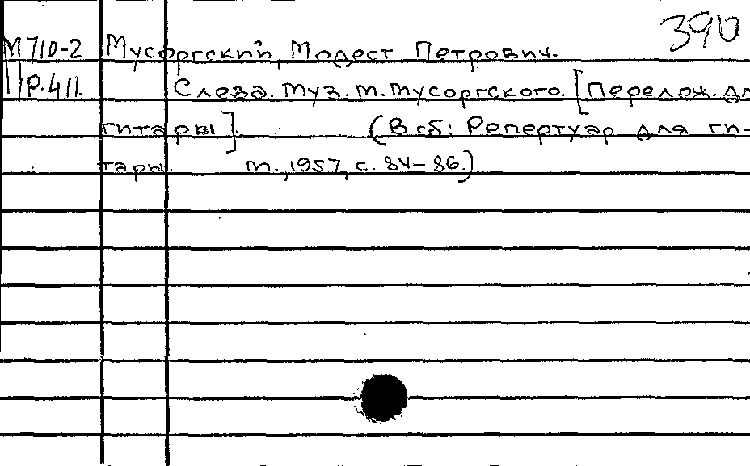 390
М710-2 Мусоргский, Модест Петрович.
Р.411. Слеза. Муз. М. Мусоргского. [Перелож. дл
гитары]. (В сб: Репертуар для ги-
тары. М., 1957, с. 84-86.)